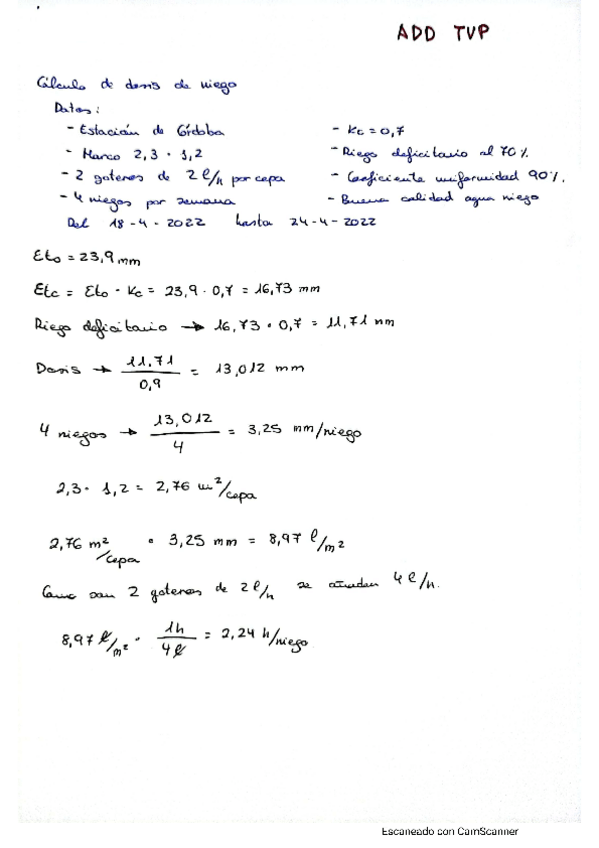 ADD TVP
Cálculo de dosis de riego
Datos:
- Estación de Córdoba
- Marco 2,3 · 1,2
- 2 goteros de 2 l/h por cepa
- 4 riegos por semana
Del 18-4-2022 hasta 24-4-2022
- Kc = 0,7
- Riego deficitario al 70%
- Coeficiente uniformidad 90%.
- Buena calidad agua riego
Eto = 23,9 mm
Etc = Eto · Kc = 23,9 · 0,7 = 16,73 mm
Riego deficitario → 16,73 · 0,7 = 11,71 mm
Dosis → 11,71 / 0,9 = 13,012 mm
4 riegos → 13,012 / 4 = 3,25 mm/riego
2,3 · 1,2 = 2,76 m²/cepa
2,76 m²/cepa · 3,25 mm = 8,97 l/m²
Como son 2 goteros de 2 l/h se añaden 4 l/h.
8,97 l/m² · 1h / 4 l = 2,24 h/riego
Escaneado con CamScanner